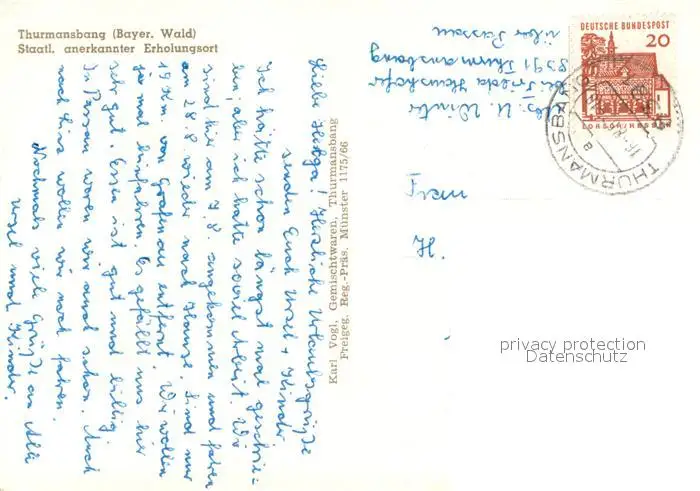 Thurmansbang (Bayer. Wald)
Staatl. anerkannter Erholungsort
Liebe Helga! Herzliche Urlaubsgrüße
senden Euch Ursel + Kinder
Ich hätte schon längst mal geschrie-
ben, aber ich hatte soviel Arbeit. Wir
sind hier am 7.8. angekommen und fahren
am 28.8 wieder nach Hause. Sind nur
19 Km. von Grafenau entfernt. Wir wollen
ja mal hinfahren. Es gefällt uns hier
sehr gut. Essen ist gut und billig.
In Passau waren wir auch schon. Auch
nach Linz wollen wir noch fahren.
Nochmals viele Grüße an Alle
Ursel und Kinder.
Karl Vogl, Gemischtwaren, Thurmansbang
Freigeg. Reg.-Präs. Münster 1175/66
Abs. U. Winter
bei Frieda
8391 Thurmansbang
über Passau
DEUTSCHE BUNDESPOST
20
LORSCH/HESSEN
THURMANSBANG
a
H.
privacy protection
Datenschutz